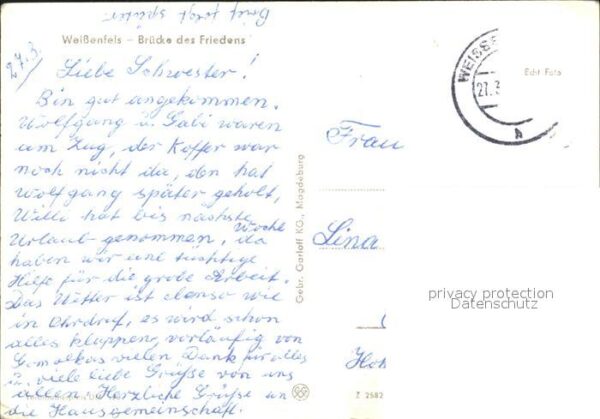 Brief folgt später.
Weißenfels – Brücke des Friedens
27.3.
Liebe Schwester!
Bin gut angekommen.
Wolfgang u. Gabi waren
am Zug, der Koffer war
noch nicht da, den hat
Wolfgang später geholt,
Willi hat bis nächste
Woche
Urlaub genommen, da
haben wir eine tüchtige
Hilfe für die große Arbeit.
Das Wetter ist ebenso wie
in Ohrdruf, es wird schon
alles klappen, vorläufig von
Gomolkas vielen Dank für alles
u. viele liebe Grüße von uns
allen. Herzliche Grüße an
die Hausgemeinschaft.
Gebr. Garloff KG., Magdeburg
WEISSE
27.3
h
Echt Foto
Frau
Lina
privacy protection
Datenschutz
Z 2582